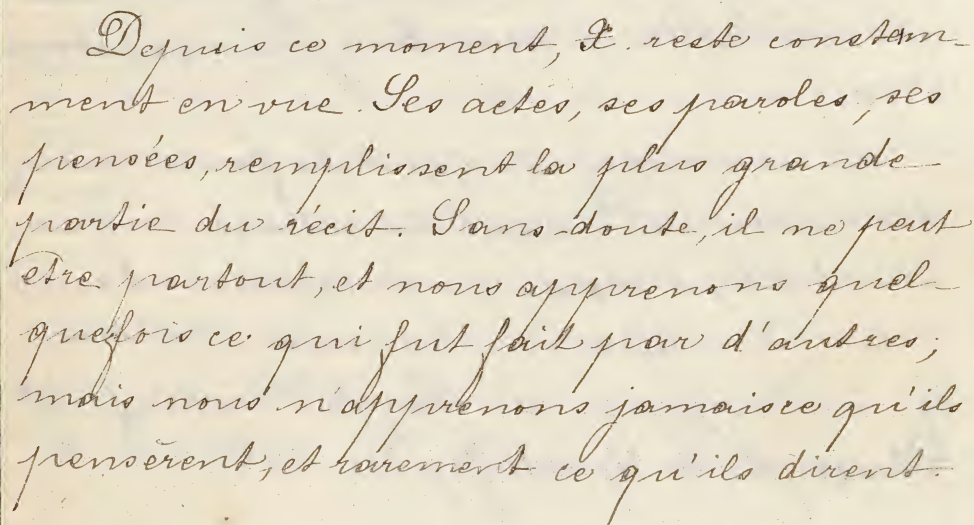 Depuis ce moment, X. reste constam-
ment en vue. Ses actes, ses paroles, ses
pensées, remplissent la plus grande
partie du récit. Sans doute, il ne peut
etre partout, et nous apprenons quel-
quefois ce qui fut fait par d'autres;
mais nous n'apprenons jamais ce qu'ils
pensèrent, et rarement ce qu'ils dirent.